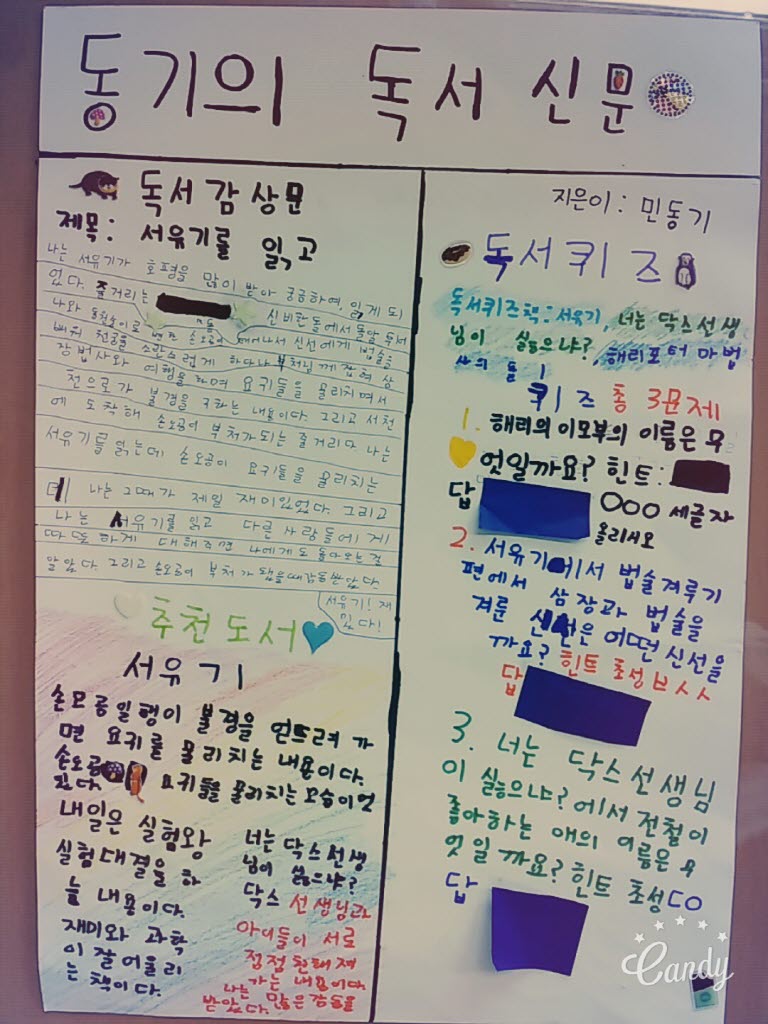 동기의 독서 신문
독서감상문
제목: 서유기를 읽고
나는 서유기가 호평을 많이 받아 궁금하여, 읽게 되
었다. 줄거리는
신비한 돌에서 돌알
나와
배워 천궁을 소란스럽게 하다나 부처님께 잡혀 삼
장법사와 여행을 하며 요키들을 물리치면서
천으로가 불경을 구하는 내용이다. 그리고 서천
에 도착해 손오공이 부처가되는 줄거리다 나는
서유기를 읽는데 손오공이 요키들을 물리치는
데 나는 그때가 제일 재미있었다. 그리고
나는 서유기를 읽고 다른 사람들에게
따뜻하게 대해주면 나에게도 돌아오는걸
알았다. 그리고 손오공이 부처가 됐을때
서유기! 재
밌다!
추천도서
서유기
손오공일행이 불경을 얻드려 가
면 요키를 물리치는 내용이다.
손오공 요키들을 물리치는 모습이멋
있다.
내일은 실험왕
실험대결을 하
늘 내용이다.
재미와 과학
이 잘어울리
는 책이다.
너는 닥스선생
님이 싫으냐?
닥스 선생님과
아이들이 서로
점점 친해져
가는 내용이다
나는 많은감동을
받았다.
지은이: 민동기
독서퀴즈
독서퀴즈책: 서유기, 너는 닥스선생
님이 싫으냐?, 해리포터 마법
사의 돌
퀴즈 총 3문제
1. 해리의 이모부의 이름은 무
엇일까요? 힌트:
답 ○○○ 세글자
올리시오
2. 서유기에서 법술겨루기
편에서 삼장과 법술을
겨룬 신선은 어떤신선을
까요? 힌트 초성 ㅂㅅㅅ
답
3. 너는 닥스선생님
이 싫으냐?에서 전철이
좋아하는 애의 이름은 무
엇일까요? 힌트 초성ㄷㅇ
답
Candy